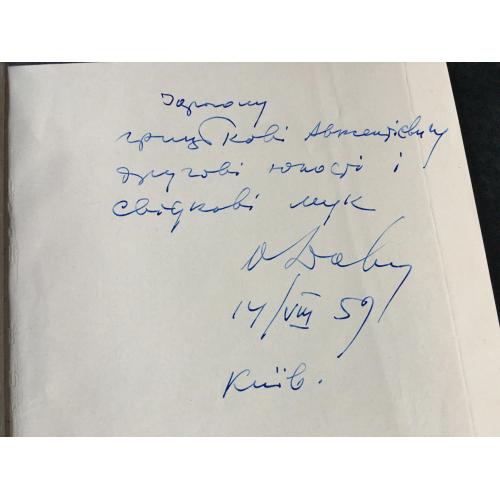 Гарному
Грицькові Авксентієвичу
другові юності і
свідкові мук
14/VIII 59
Київ.